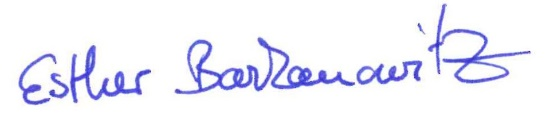 Esther Barkanowitz